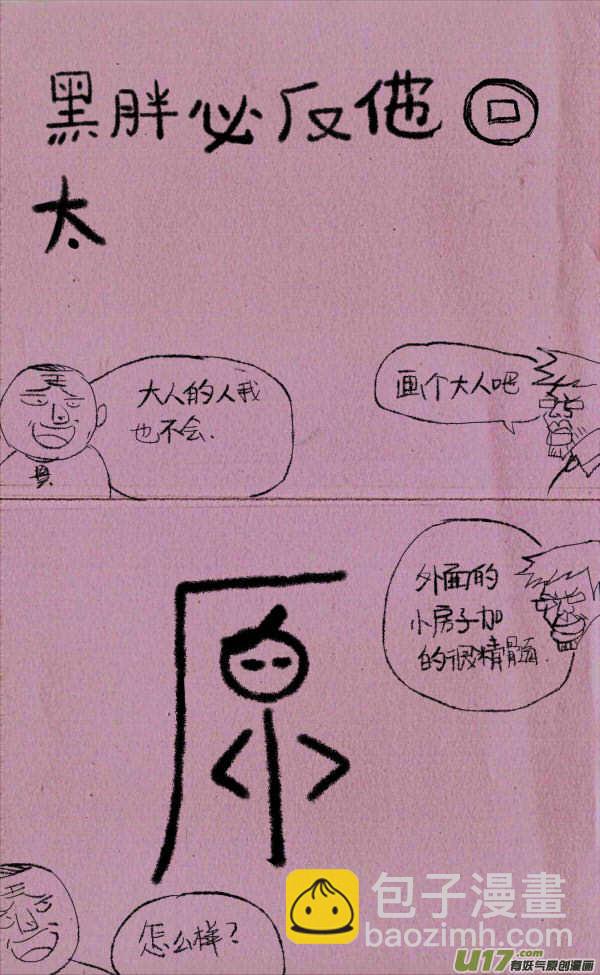 黑胖必反他回
太
画个大人吧
大人的人我
也不会.
外面的
小房子加
的很精髓.
原
怎么样?
包子漫畫
baozimh.com
U17.com
有妖气原创漫画